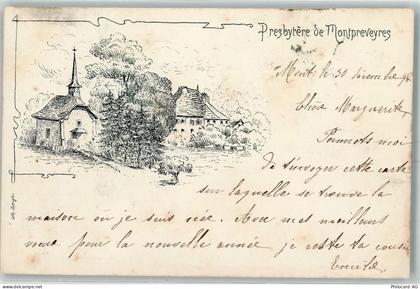 Presbytère de Montpreveyres
Mont. le 30 Décembre
Chère Marguerite,
Permets moi
de t'envoyer cette carte
sur laquelle se trouve la
maison où je suis née. Avec mes meilleurs
vœux pour la nouvelle année je reste ta cousine
philocard.com Copyright Philocard AG